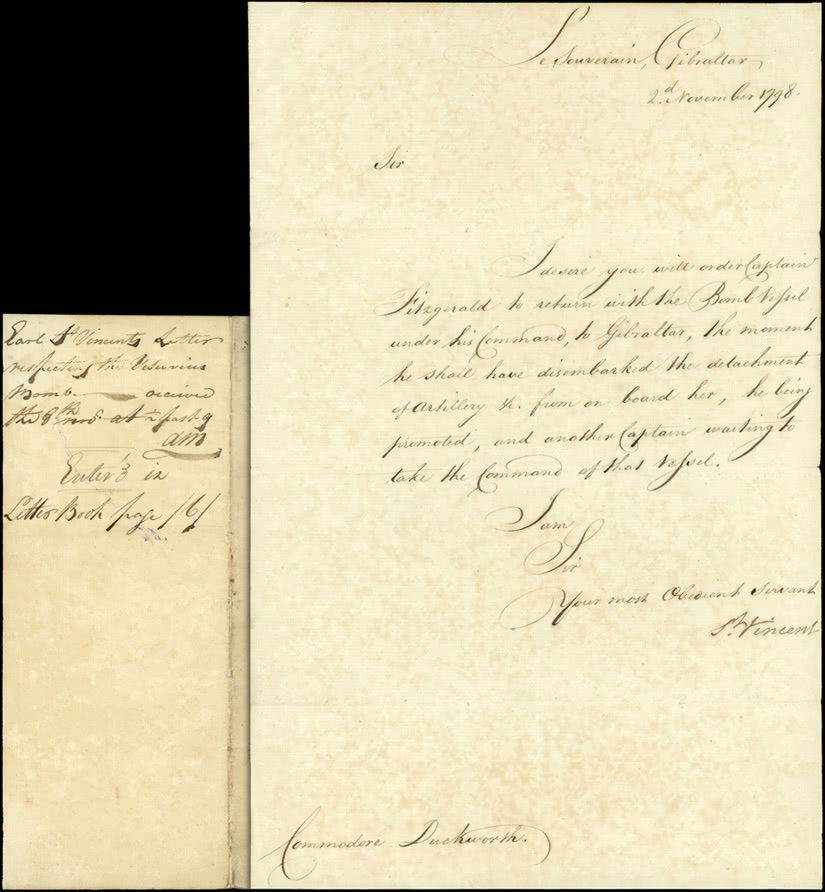 Le Souverain, Gibraltar
2.d November 1798.
Sir
I desire you will order Captain
Fitzgerald to return with the Bomb Vessel
under his Command, to Gibraltar, the moment
he shall have disembarked the detachment
of Artillery &c. from on board her, he being
promoted, and another Captain waiting to
take the Command of that Vessel.
I am
Sir
Your most Obedient Servant
St Vincent
Commodore Duckworth.
Earl St Vincents Letter
respecting the Vesuvius
Bomb. received
the 8th at ½ past 9
am
Enter'd in
Letter Book page 161